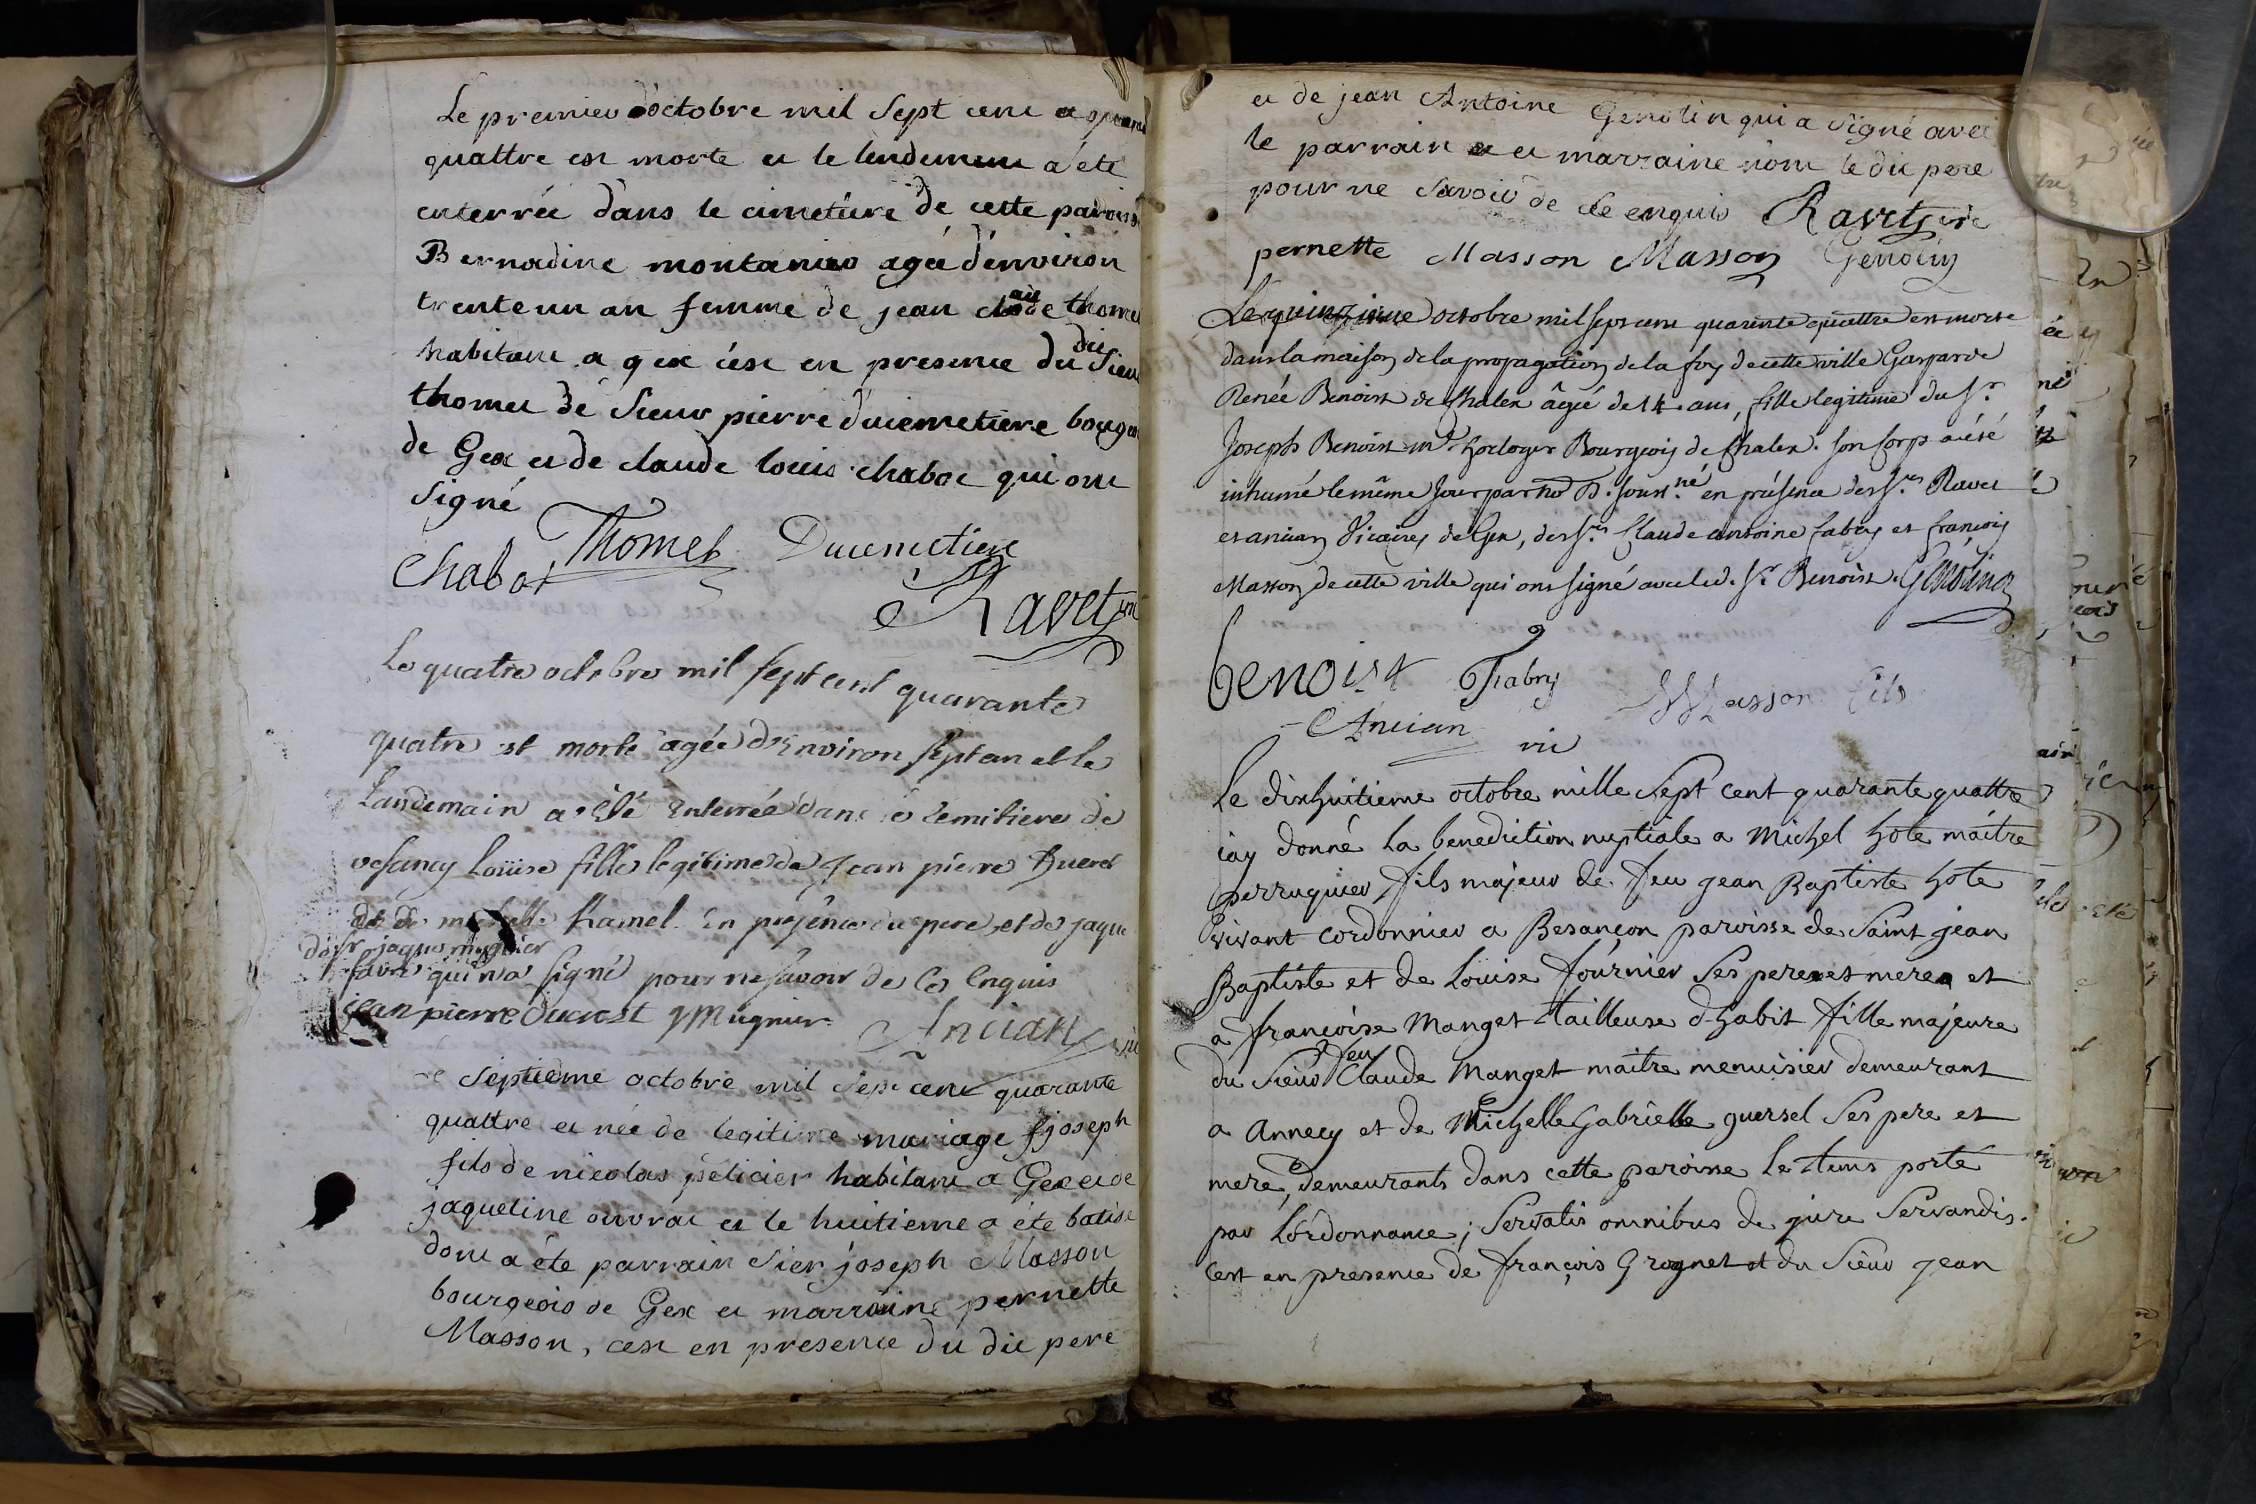 Le premier d'octobre mil Sept cent quarante
quattre est morte et le lendemain a été
enterrée dans le cimetiere de cette paroisse
Bernadine montanier agée d'environ
trente un an femme de jean claude thomet
habitant a gex c'est en presence du dit Sieur
thomet de Sieur pierre ducimetiere bourgeois
de Gex et de claude louis chabot qui ont
signé
Thomet Ducimetiere
Chabot
Ravet vic
Le quatre octobre mil sept cent quarante
quatre est morte agée d'Environ sept an et le
Landemain a été Enterrée dans le Cemitiere de
vesancy Louise fille legitime de Jean pierre
et de michelle hamel En présence du pere et de jaque
de Sr jaque mugnier
favre qui n'a signé pour ne savoir de Ces Enquis
jean pierre Ducrest JMugnier
Ancian vic
Le Septieme octobre mil Sept cent quarante
quattre et née de legitime mariage joseph
fils de nicolas pelicier habitant a Gex et de
jaqueline ouvrat et le huitieme a été batisé
dont a été parrain Sier joseph Masson
bourgeois de Gex et marraine pernette
Masson, cest en presence du dit pere
et de jean Antoine Genolin qui a signé avec
le parrain et marraine non le dit pere
pour ne Savoir de ce enquis Ravet vic
pernette Masson Masson Genolin
Le quinzieme octobre mil sept cent quarente quattre est morte
dans la maison de la propagation de la foy de cette ville Gasparde
Renée Benoist de Chalex âgée de 14 ans, fille legitime du Sr
Joseph Benoist md horloger Bourgeois de Chalex. Son Corps a été
inhumé le même Jour par no. d. souss.né en présence des Srs Ravet
et ancian Vicaires de Gex, des Srs Claude antoine fabry et françois
Masson de cette ville qui ont signé avec led. Sr Benoist. Genolin
benoist Fabry
Masson fils
Ancian vic
Le dixhuitieme octobre mille Sept cent quarante quattre
iay donné la benediction nuptiale a Michel hote maître
perruquier fils majeur de feu jean Baptiste hote
vivant cordonnier a Besançon paroisse de Saint jean
Baptiste et de Louise fournier Ses pere et mere et
a françoise Manget tailleuse d'habit fille majeure
du Sieur feu Claude Manget maître menuisier demeurant
a Annecy et de Michelle Gabrielle guersel Ses pere et
mere, demeurants dans cette paroisse Le tems porté
par L'ordonnance; Servatis omnibus de jure Servandis.
Cest en presence de françois Grognet et du Sieur jean